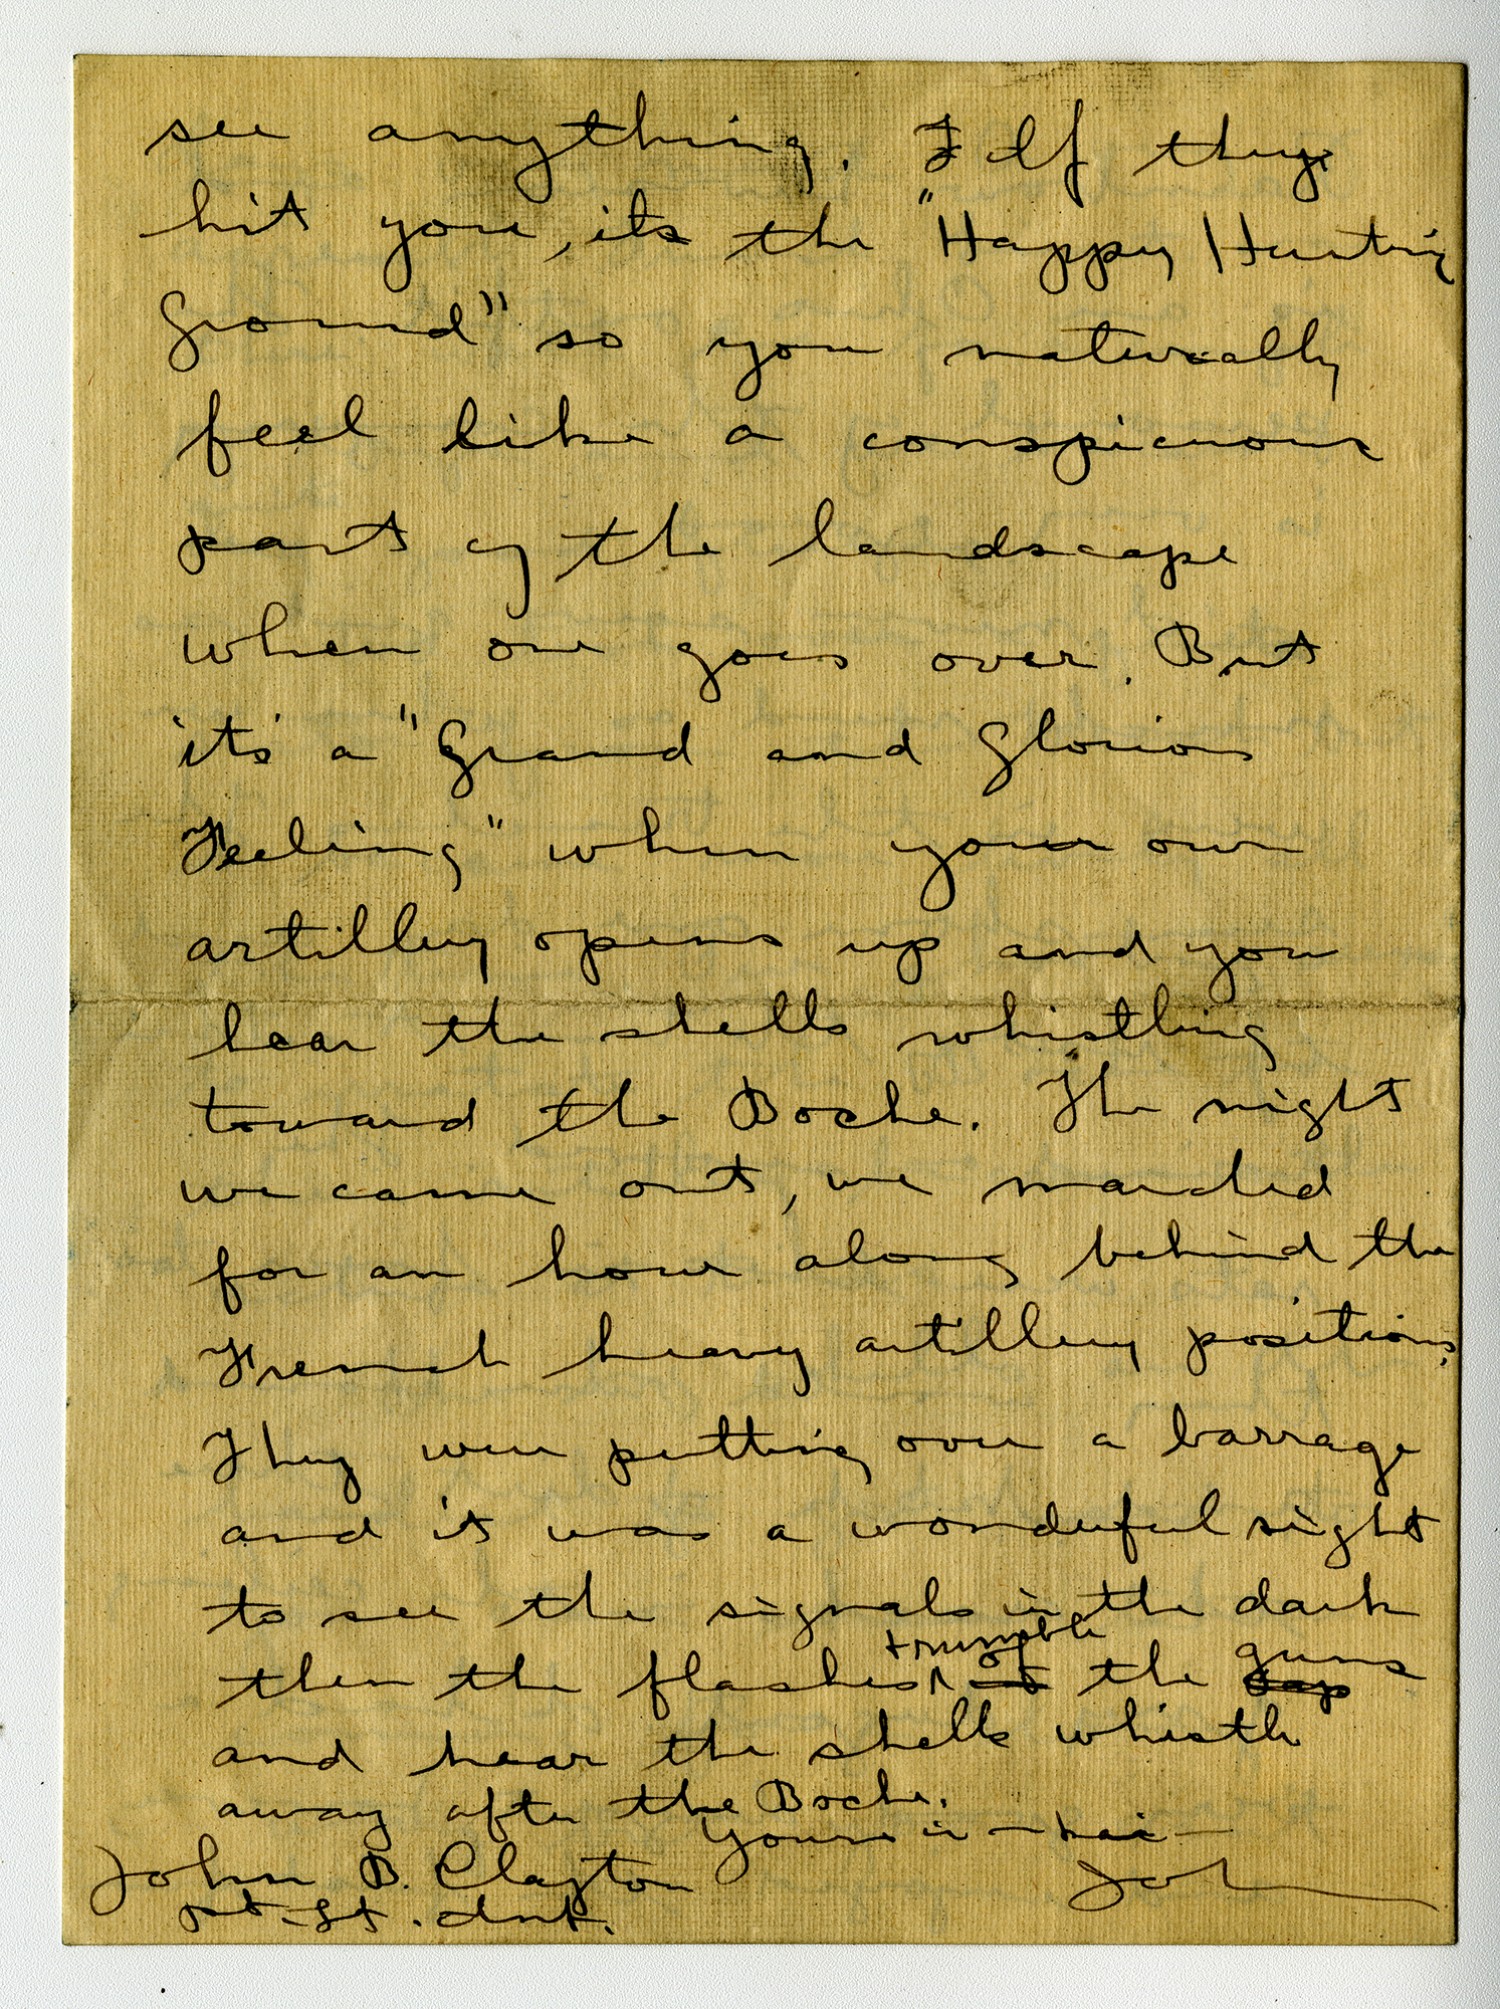 see anything. If they
hit you, its the "Happy Hunting
Ground" so you naturally
feel like a conspicuous
part of the landscape
when one goes over. But
it's a "Grand and Glorious
Feeling" when your own
artillery opens up and you
hear the shells whistling
toward the Boche. The night
we came out, we marched
for an hour along behind the
French heavy artillery positions.
They were putting over a barrage
and it was a wonderful sight
to see the signals in the dark
then the flashes, tremble of the guns
and hear the shells whistle
away after the Boche.
Yours in
John
John B. Clayton
1st Lt. Inf.